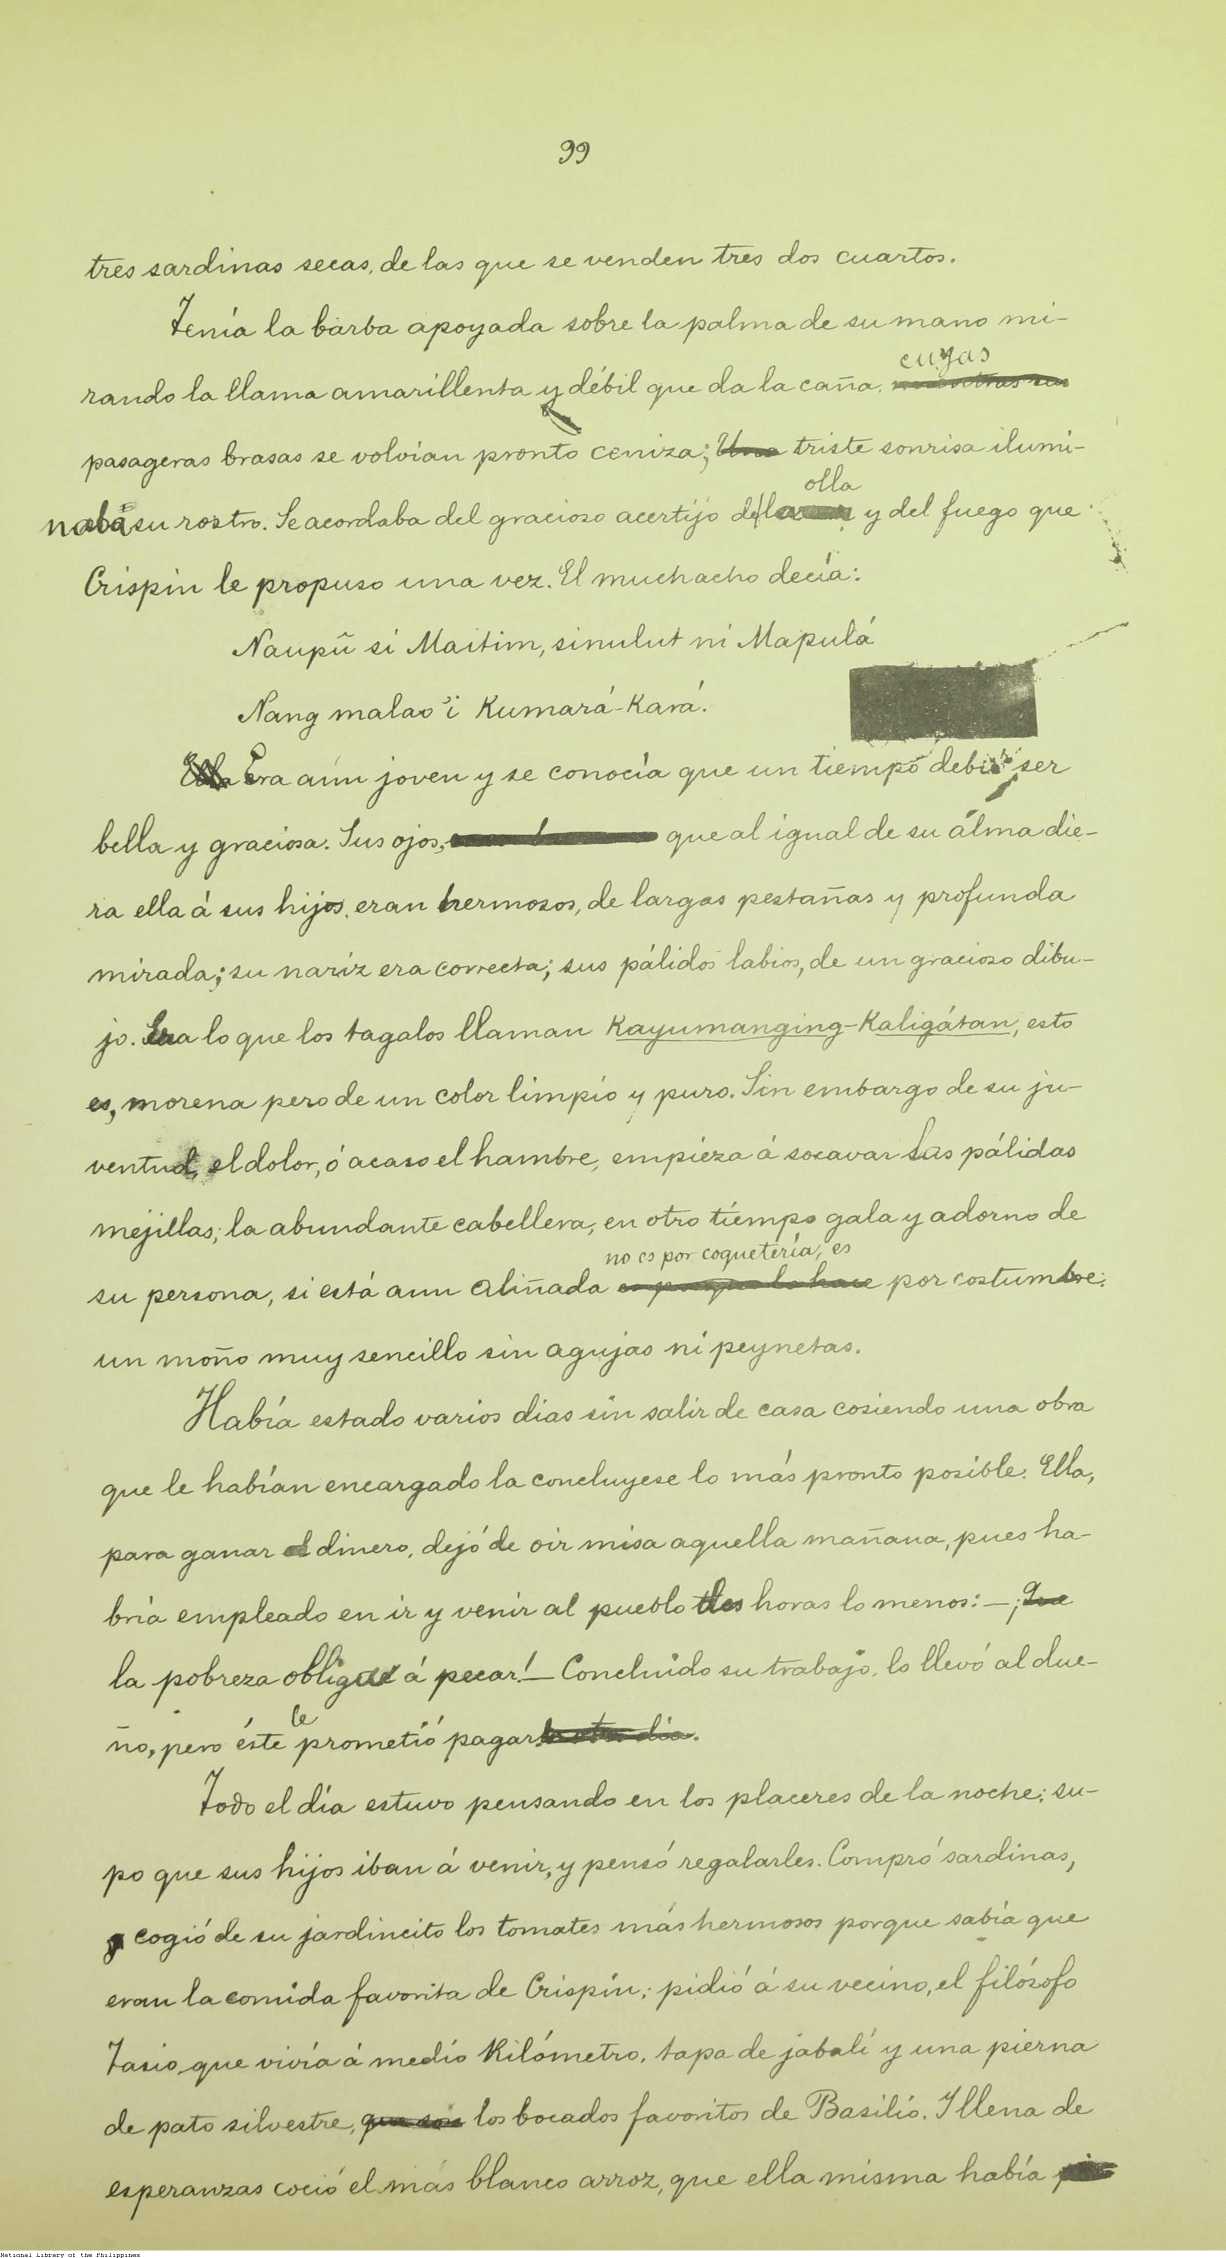 99
tres sardinas secas, de las que se venden tres dos cuartos.
Tenía la barba apoyada sobre la palma de su mano mi-
rando la llama amarillenta y débil que da la caña, cuyas
pasageras brasas se volvían pronto ceniza; Una triste sonrisa ilumi-
naba su rostro. Se acordaba del gracioso acertijo de la olla y del fuego que
Crispin le propuso una vez. El muchacho decía:
Naupû si Maitim, sinulut ni Mapulá
Nang malao'i Kumará-Kará.
Ella Era aún joven y se conocía que un tiempo debió ser
bella y graciosa. Sus ojos, que al igual de su alma die-
ra ella á sus hijos, eran hermosos, de largas pestañas y profunda
mirada; su nariz era correcta; sus pálidos labios, de un gracioso dibu-
jo. Era lo que los tagalos llaman Kayumanging-Kaligátan, esto
es, morena pero de un color limpio y puro. Sin embargo de su ju-
ventud, el dolor, ó acaso el hambre, empieza á socavar las pálidas
mejillas; la abundante cabellera, en otro tiempo gala y adorno de
su persona, si está aun aliñada no es por coquetería, es por costumbre:
un moño muy sencillo sin agujas ni peynetas.
Había estado varios dias sin salir de casa cosiendo una obra
que le habían encargado la concluyese lo más pronto posible. Ella,
para ganar el dinero, dejó de oir misa aquella mañana, pues ha-
bría empleado en ir y venir al pueblo dos horas lo menos: — ¡Que
la pobreza obliga á pecar! — Concluido su trabajo, lo llevó al due-
ño, pero éste le prometió pagar otro dia.
Todo el día estuvo pensando en los placeres de la noche: su-
po que sus hijos iban á venir, y pensó regalarles. Compró sardinas,
cogió de su jardincito los tomates más hermosos porque sabía que
eran la comida favorita de Crispín; pidió á su vecino, el filósofo
Tasio que vivía á medio Kilómetro, tapa de jabalí y una pierna
de pato silvestre, que son los bocados favoritos de Basilio. Y llena de
esperanzas coció el más blanco arroz, que ella misma había